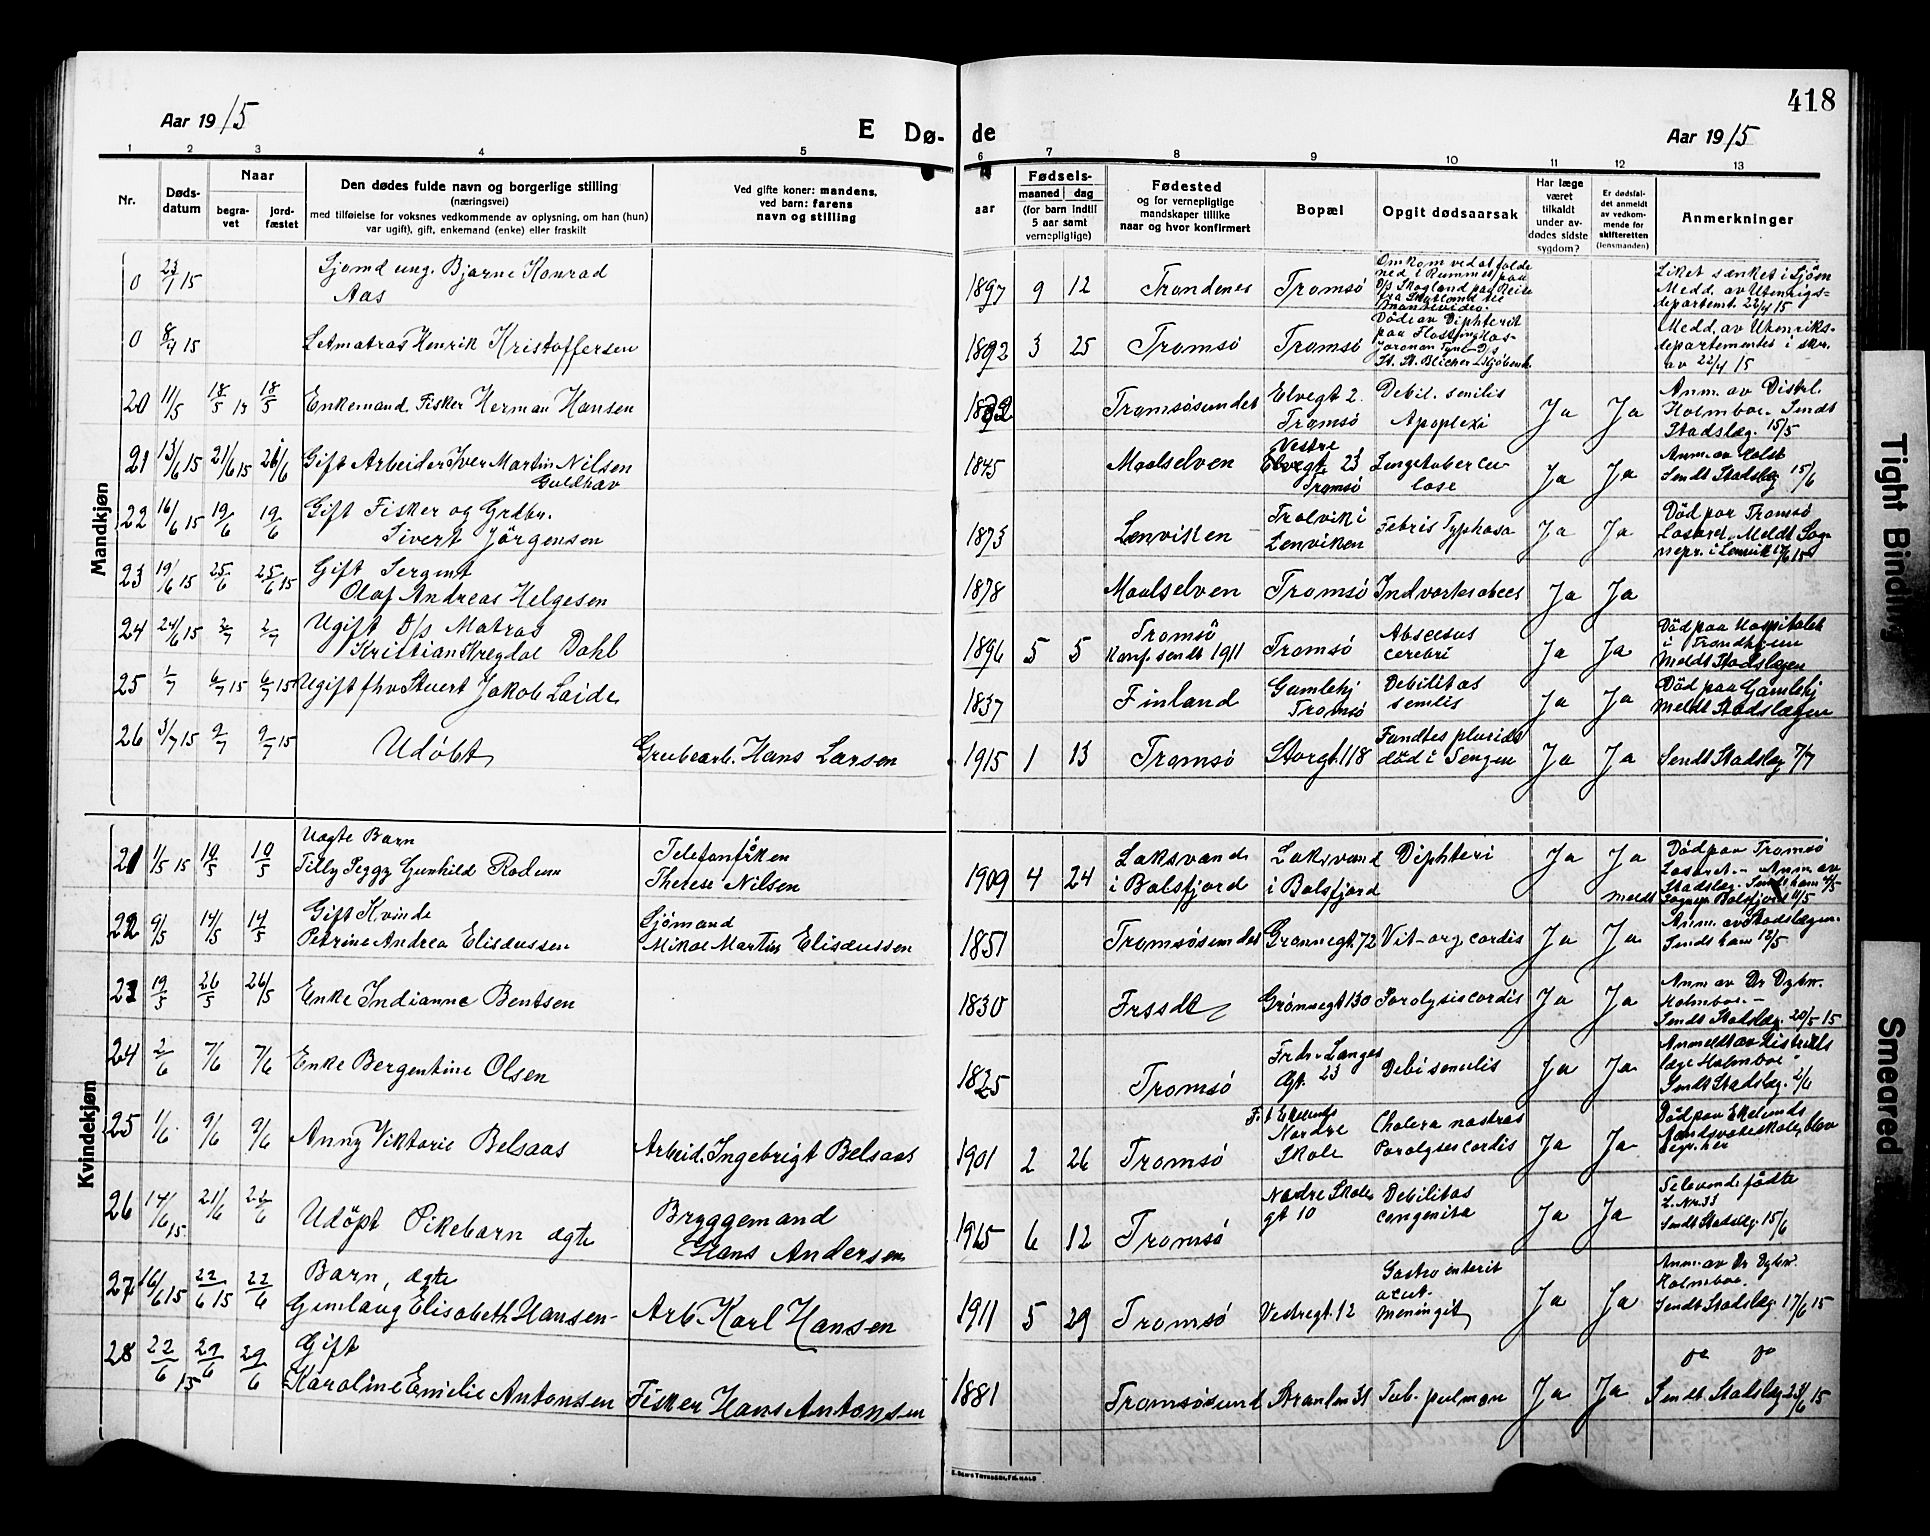 418
Aar 1915
E Dø-
de
Aar 1915
1 2 3 4 5 6 7 8 9 10 11 12 13
Nr.
Døds-
datum
Naar
begra-
vet
jord-
fæstet
Den dødes fulde navn og borgerlige stilling
(næringsvei)
med tilføielse for voksnes vedkommende av oplysning, om han (hun)
var ugift), gift, enkemand (enke) eller fraskilt
Ved gifte koner: mandens,
ved barn: farens
navn og stilling
aar
Fødsels-
maaned dag
(for barn indtil
5 aar samt
vernepligtige)
Fødested
og for vernepligtige
mandskaper tillike
naar og hvor konfirmert
Bopæl
Opgit dødsaarsak
Har læge
været
tilkaldt
under av-
dødes sidste
sygdom?
Er dødsfal-
det anmeldt
av vedkom-
mende for
skifteretten
(lensmanden)
Anmerkninger
Mandkjøn
0 23/1 15 Sjømd ung. Bjarne Konrad
Aas
1897 9 12 Trondenes Tromsø
Omkom ved at falde
ned i Rummet paa
D/s Skogland paa Reise
fra Skotland til
Montevideo
Liket sænket i Sjøen
Medd. av Utenrigs-
departemt. 22/4 15
0 8/4 15 Letmatros Henrik Kristoffersen
1892 3 25 Tromsö Tromsö
Döde av Diphterit
paa
Medd. av Utenriks-
departementet i skr.
av 22/4 15
20 11/5 18/5 15 18/5 Enkemand Fisker Herman Hansen
1832 Tromsösundet Elvegt 2.
Tromsö
Debil. senilis
Apoplexi
Ja Ja
Anm. av Distrl.
Holmboe. Sendt
Stadslæg. 15/5
21 13/6 15 21/6 15 26/6 Gift Arbeider Iver Martin Nilsen
Guldhav
1845 Maalselven Vestre
Elvegt 23
Tromsö
Lungetubercu
lose
Ja Ja
Anm. av Holst
Sendt Stadslæg 15/6
22 16/6 15 19/6 19/6 Gift Fisker og Grdbr.
Sivert Jörgensen
1873 Lenviken Trolvik i
Lenviken
Febris Typhosa
Ja Ja
Död paa Tromsö
Lasaret. Meldt Sog-
nepr. i Lenvik 17/6 15
23 19/6 15 25/6 25/6 15 Gift Sergent
Olaf Andreas Helgesen
1878 Maalselven Tromsö Indvortes abces Ja Ja
24 24/6 15 2/7 2/7 Ugift D/s Matros
Kristian Dahl
1896 5 5 Tromsö
Konf. sendt 1911
Tromsö
Abscesus
cerebri
Ja Ja
Död paa Hospitalet
i Trondhjem
Meldt Stadslægen
25 1/7 6/7 15 6/7 15 Ugift fhv Stuert Jakob Laide
1837 Finland Gamlehj
Tromsö
Debilitas
senilis
Ja Ja
Död paa Gamlehj
Meldt Stadslægen
26 3/7 15 9/7 9/7 15 Udöbt Grubearb. Hans Larsen
1915 1 13 Tromsö Storgt. 118
Fundtes
död i Sengen
Ja Ja
Sendt Stadslæg 7/7
Kvindekjøn
21 1/5 15 10/5 10/5 Uægte Barn
Tilly Peggy Gunhild Rodum
Telefonfrken
Therese Nilsen
1909 4 24 Laksvand
i Balsfjord
Laksvand
i Balsfjord
Diphteri
Ja Ja
Död paa Tromsö
Lasaret. - Anm. av
Stadslæg. Sendt ham 4/5
Meldt Sognepr. Balsfjord 11/5
22 9/5 14/5 14/5 Gift Kvinde
Petrine Andrea Elisæussen
Sjömand
Mikal Martin Elisæussen
1851 Tromsösundet Grønnegt. 72 Vit. org. cordis Ja Ja
Anm. av Stadslægen.
Sendt ham 12/5
23 19/5 26/5 26/5 Enke Indianna Bentsen
1830 Grønnegt 130 Paralysis cordis Ja Ja
Anm av Dr Dybw.
Holmboe. -
Sendt Stadslæg. 20/5 15
24 2/6 7/6 7/6 Enke Bergentine Olsen
1825 Tromsö Frdr. Langes
Gt. 23
Debi senilis
Ja Ja
Anmeldt av Distrikts
læge Holmboe
Sendt Stadslæg. 2/6
25 1/6 9/6 9/6 Anny Viktorie Belsaas Arbeid. Ingebrigt Belsaas
1901 2 26 Tromsö F. t Ekelunds
Nordre
Skole
Cholera nostras
Paralyses cordis
Ja Ja
Död paa Ekelunds
Aandsvakeskole, blev
begr. her
26 14/6 15. 21/6 22/6 Udöpt Pikebarn ægte
Bryggemand
Hans Andersen
1915 6 12 Tromsö Nordre Skole
gt 10
Debilitas
congenita
Ja Ja
Selevende fødte
L. Nr. 33
Sendt Stadslæg. 15/6
27 16/6 15 22/6 15 22/6 Barn, ægte
Gunlaug Elisabeth Hansen-
Arb. Karl Hansen
1911 5 29 Tromsö Vestregt. 12
Gastro enterit
acut.
Meningit
Ja Ja
Anm. av Dr Dybw.
Holmboe.
Sendt Stadslæg. 17/6 15
28 22/6 15 29/6 29/6 Gift
Karoline Emelie Antonsen Fisker Hans Antonsen
1881 Tromsösund Strandvn 31 Tub. pulmon Ja Ja
Sendt. Stadslæg 23/6 15
Tight Binding
Smeared